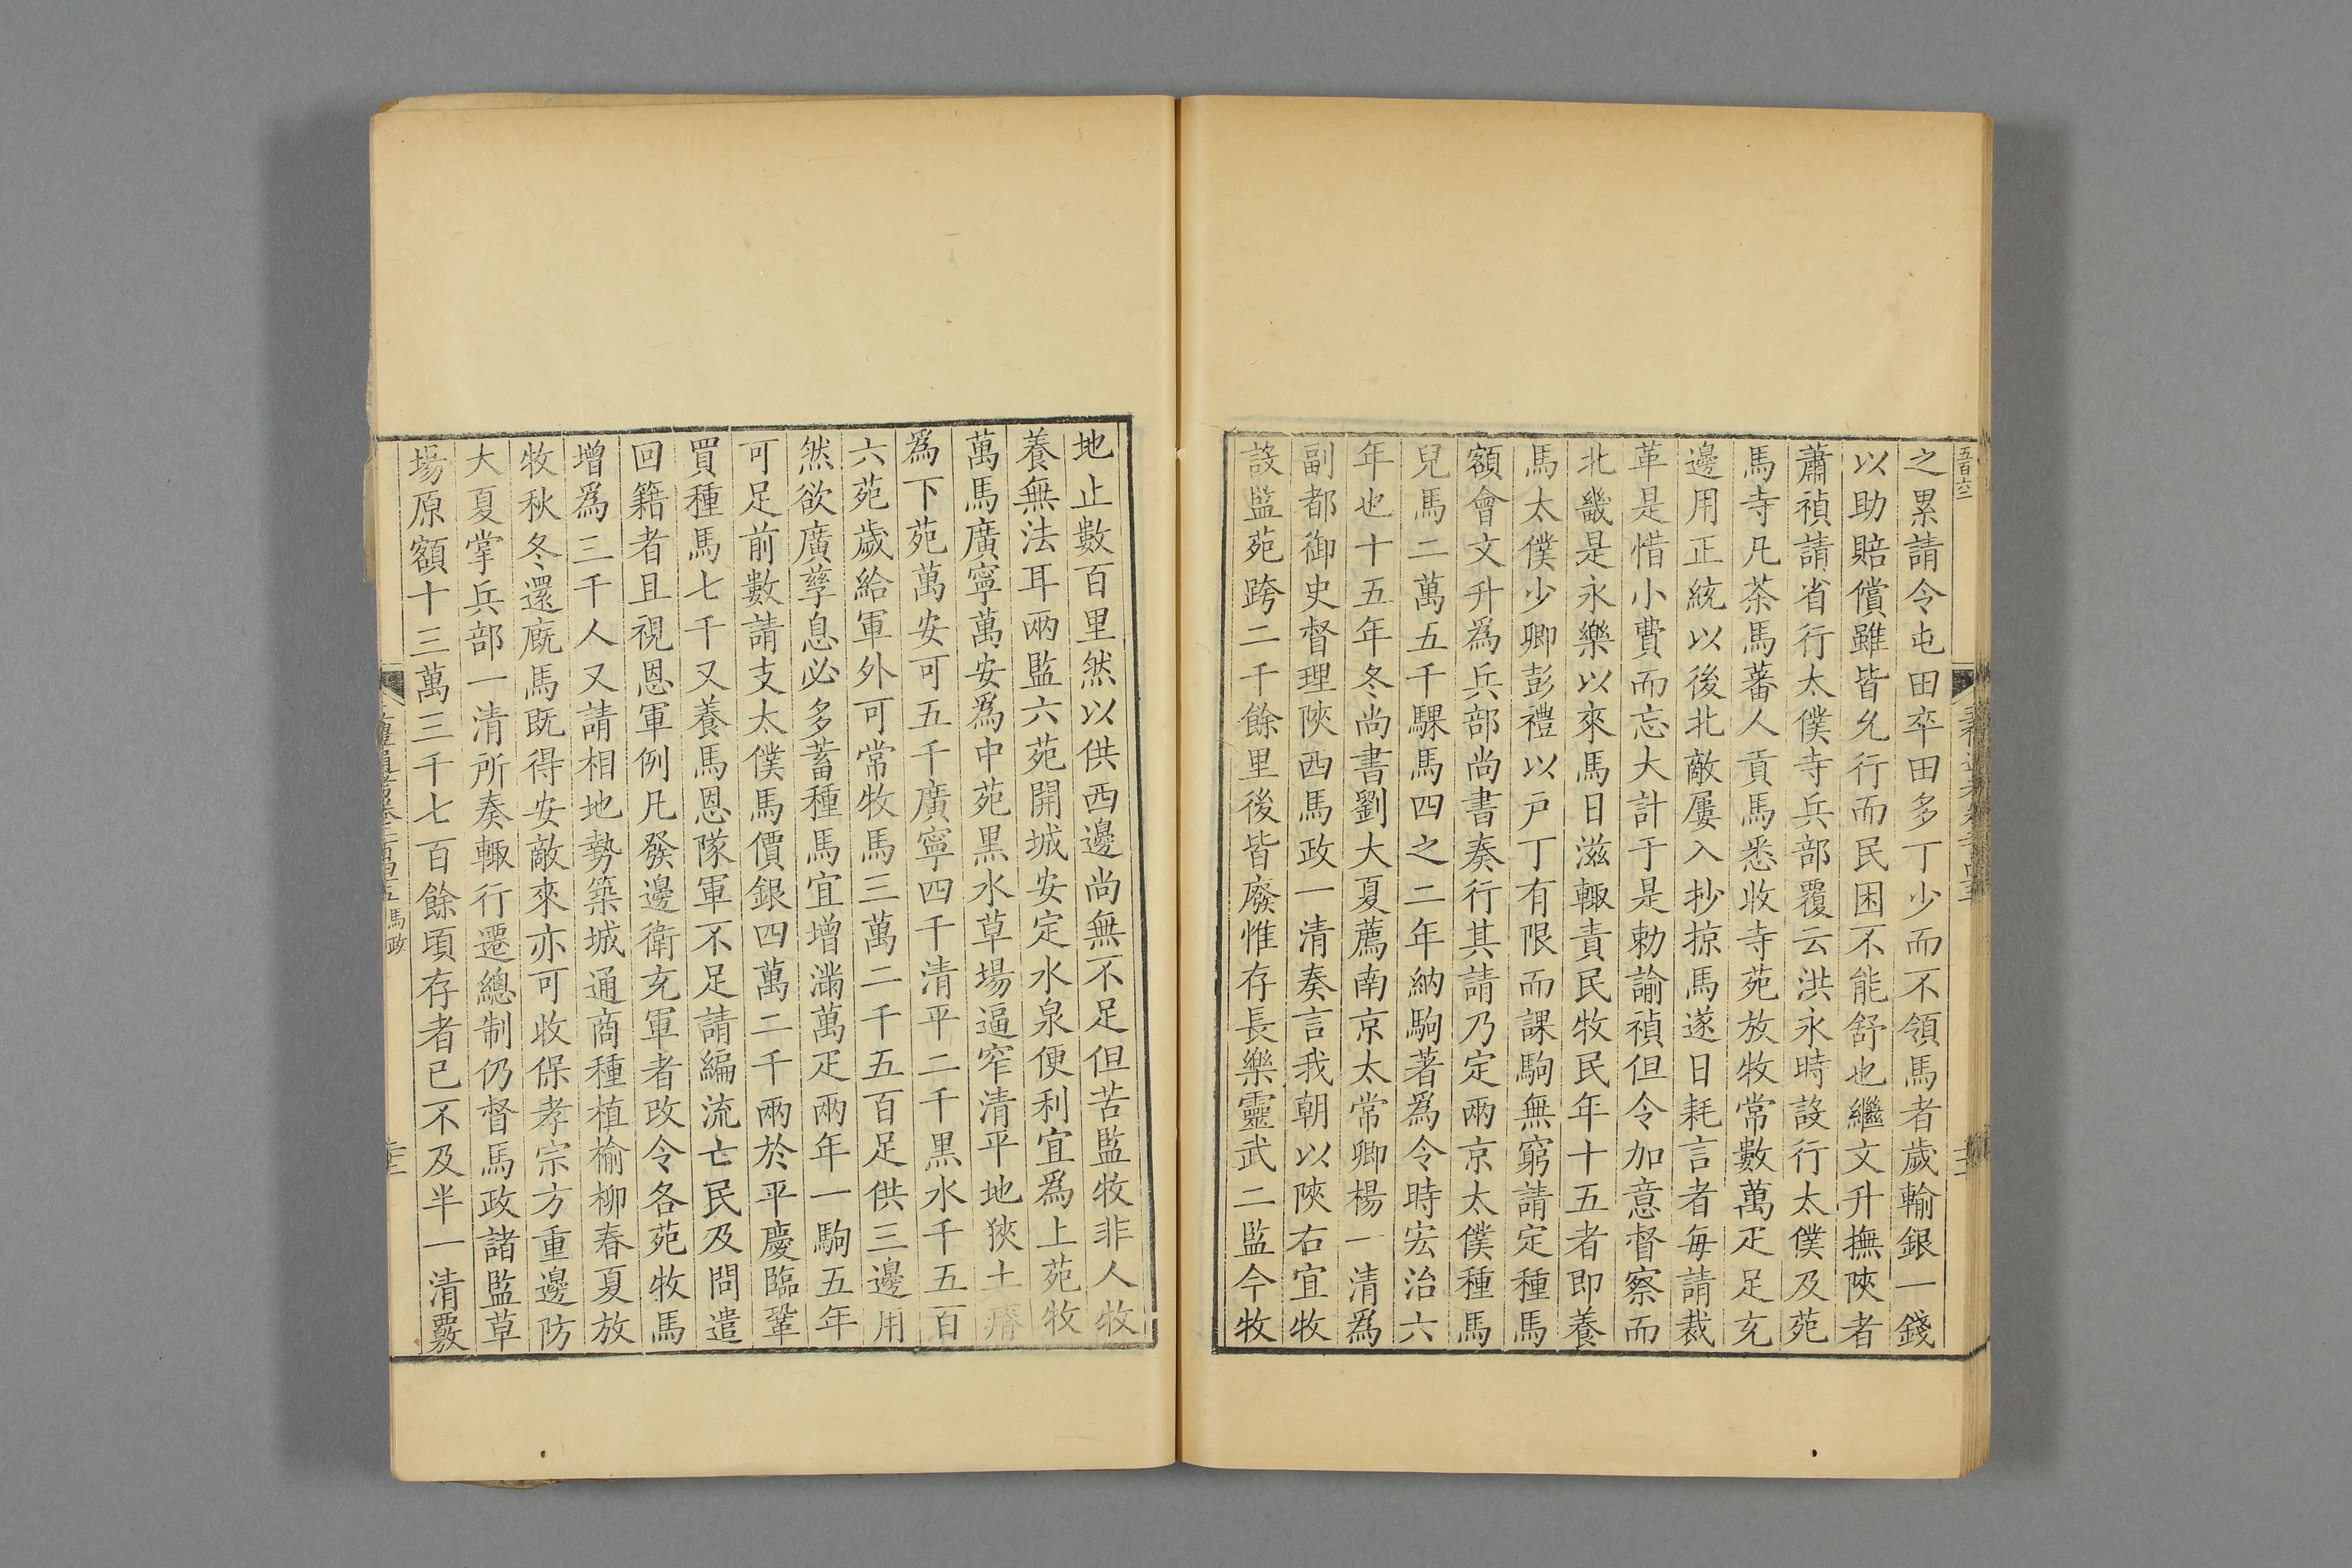 五百六二
之累請令屯田卒田多丁少而不領馬者歲輸銀一錢
以助賠償雖皆允行而民困不能舒也繼文升撫陝者
蕭禎請省行太僕寺兵部覆云洪永時設行太僕及苑
馬寺凡茶馬蕃人貢馬悉收寺苑放牧常數萬疋足充
邊用正統以後北敵屢入抄掠馬遂日耗言者每請裁
革是惜小費而忘大計于是勅諭禎但令加意督察而
北畿是永樂以來馬日滋輒責民牧民年十五者即養
馬太僕少卿彭禮以戸丁有限而課駒無窮請定種馬
額會文升爲兵部尚書奏行其請乃定兩京太僕種馬
兒馬二萬五千騍馬四之二年納駒著爲令時宏治六
年也十五年冬尚書劉大夏薦南京太常卿楊一清爲
副都御史督理陝西馬政一清奏言我朝以陝右宜牧
設監苑跨二千餘里後皆廢惟存長樂靈武二監今牧
地止數百里然以供西邊尚無不足但苦監牧非人牧
養無法耳兩監六苑開城安定水泉便利宜爲上苑牧
萬馬廣寧萬安爲中苑黑水草場逼窄清平地狹土瘠
爲下苑萬安可五千廣寧四千清平二千黑水千五百
六苑歲給軍外可常牧馬三萬二千五百足供三邊用
然欲廣孳息必多蓄種馬宜增滿萬疋兩年一駒五年
可足前數請支太僕馬價銀四萬二千兩於平慶臨鞏
買種馬七千又養馬恩隊軍不足請編流亡民及問遣
回籍者且視恩軍例凡發邊衛充軍者改令各苑牧馬
增爲三千人又請相地勢築城通商種植榆柳春夏放
牧秋冬還廐馬既得安敵來亦可收保孝宗方重邊防
大夏掌兵部一清所奏輒行遷總制仍督馬政諸監草
場原額十三萬三千七百餘頃存者已不及半一清覈
馬政